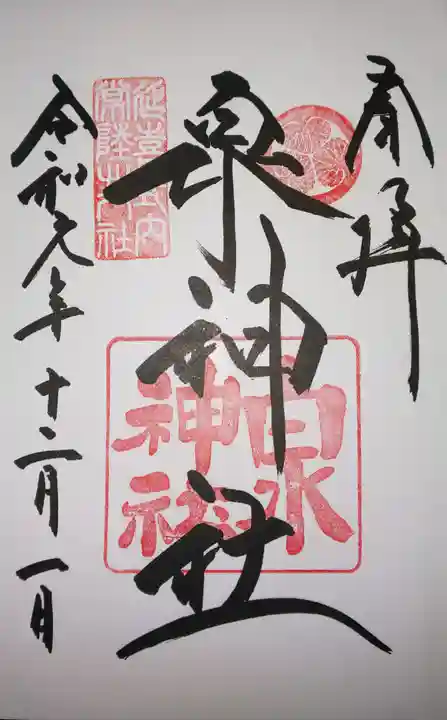 奉拝
泉神社
令和元年十二月一日
延喜式内
常陸二十八社
泉
神社